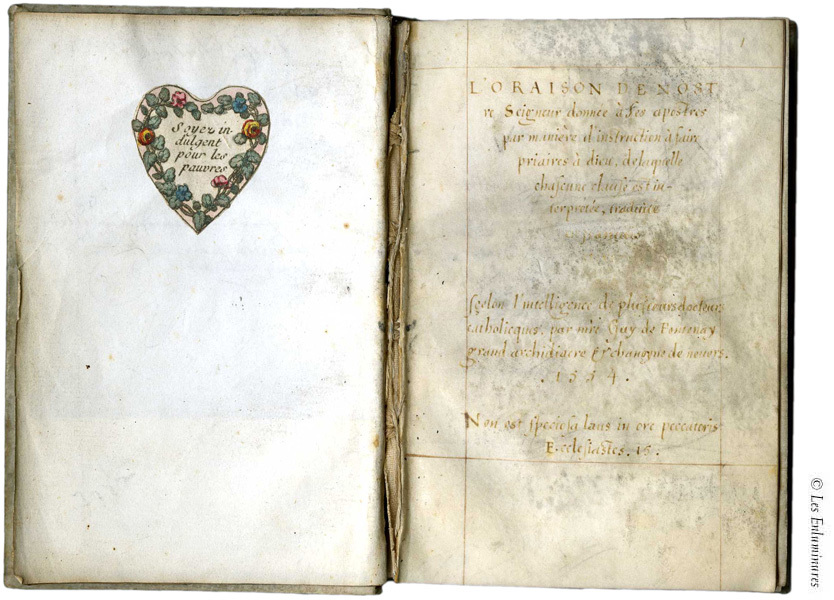 Soyez in-
dulgent
pour les
pauvres
1
L'ORAISON DE NOST
re Seigneur donnee à ses apostres
par manière d'instruction à faire
priaires à dieu, de laquelle
chascune clause est in-
terprétée, traduite
selon l'intelligence de plusieurs docteurs
catholicques, par mre Guy de Fontenay
grand archidiacre & chanoyne de nevers.
.1554.
Non est speciosa laus in ore peccatoris
Ecclesiastes. 15.
© Les Enluminures